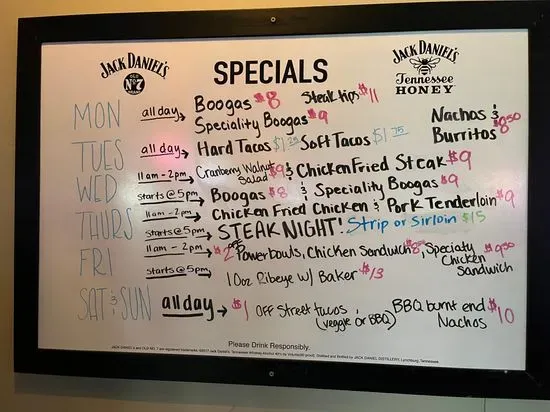 JACK DANIEL'S
OLD NO. 7 BRAND
SPECIALS
JACK DANIEL'S
Tennessee
HONEY
MON all day → Boogas $8 Steak tips $11
Speciality Boogas $9
Nachos &
Burritos $8.50
TUES all day → Hard Tacos $1.25 Soft Tacos $1.75
WED 11am-2pm → Cranberry Walnut Salad $9 & Chicken Fried Steak $9
starts @ 5pm → Boogas $8 & Speciality Boogas $9
THURS 11am-2pm → Chicken Fried Chicken & Pork Tenderloin $9
starts @ 5pm → STEAK NIGHT! Strip or Sirloin $15
FRI 11am-2pm → $2 OFF Powerbowls, Chicken Sandwich $8.50, Specialty Chicken Sandwich $9.50
starts @ 5pm → 10oz Ribeye w/ Baker $13
SAT & SUN all day → $1 OFF Street tacos (veggie or BBQ) BBQ burnt end Nachos $10
Please Drink Responsibly.
JACK DANIEL'S and OLD NO. 7 are registered trademarks. ©2017 Jack Daniel's. Tennessee Whiskey Alcohol 40% by Volume (80 proof). Distilled and Bottled by JACK DANIEL DISTILLERY, Lynchburg, Tennessee.